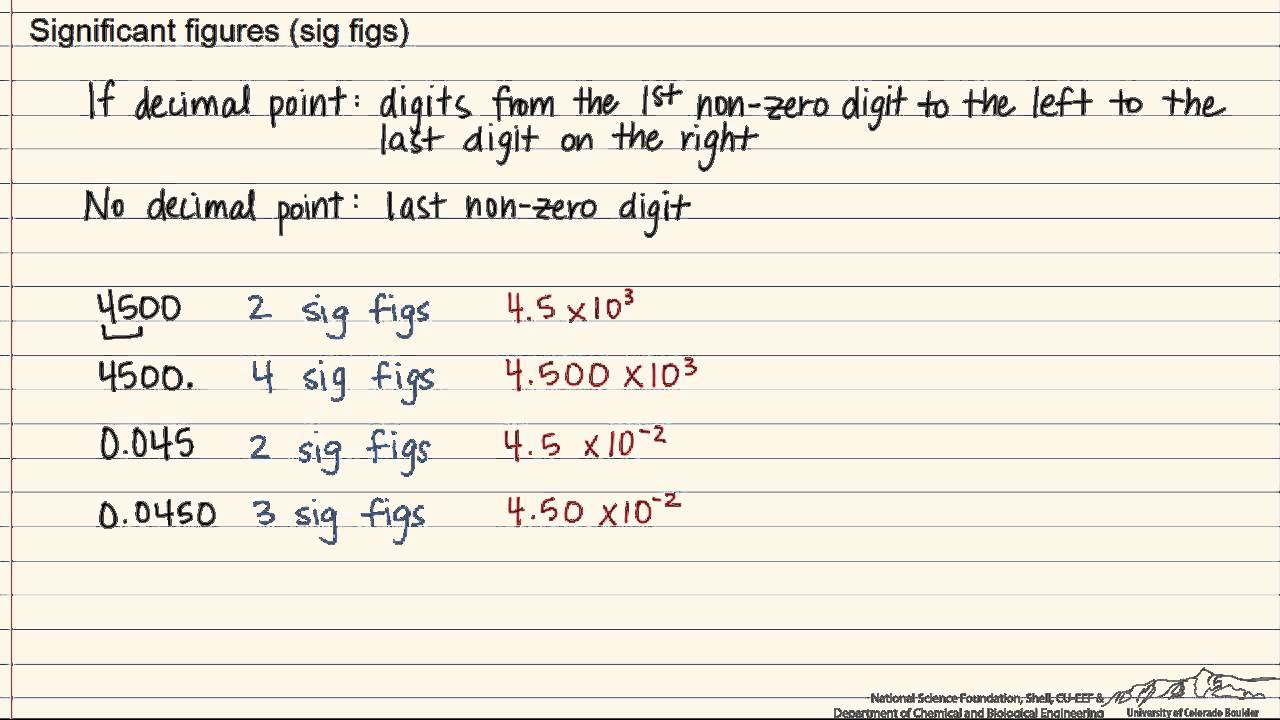 Significant figures (sig figs)
If decimal point: digits from the 1st non-zero digit to the left to the
last digit on the right
No decimal point: last non-zero digit
4500 2 sig figs 4.5 x10³
4500. 4 sig figs 4.500 x10³
0.045 2 sig figs 4.5 x10⁻²
0.0450 3 sig figs 4.50 x10⁻²
National Science Foundation, Shell, CU-EEF &
Department of Chemical and Biological Engineering University of Colorado Boulder